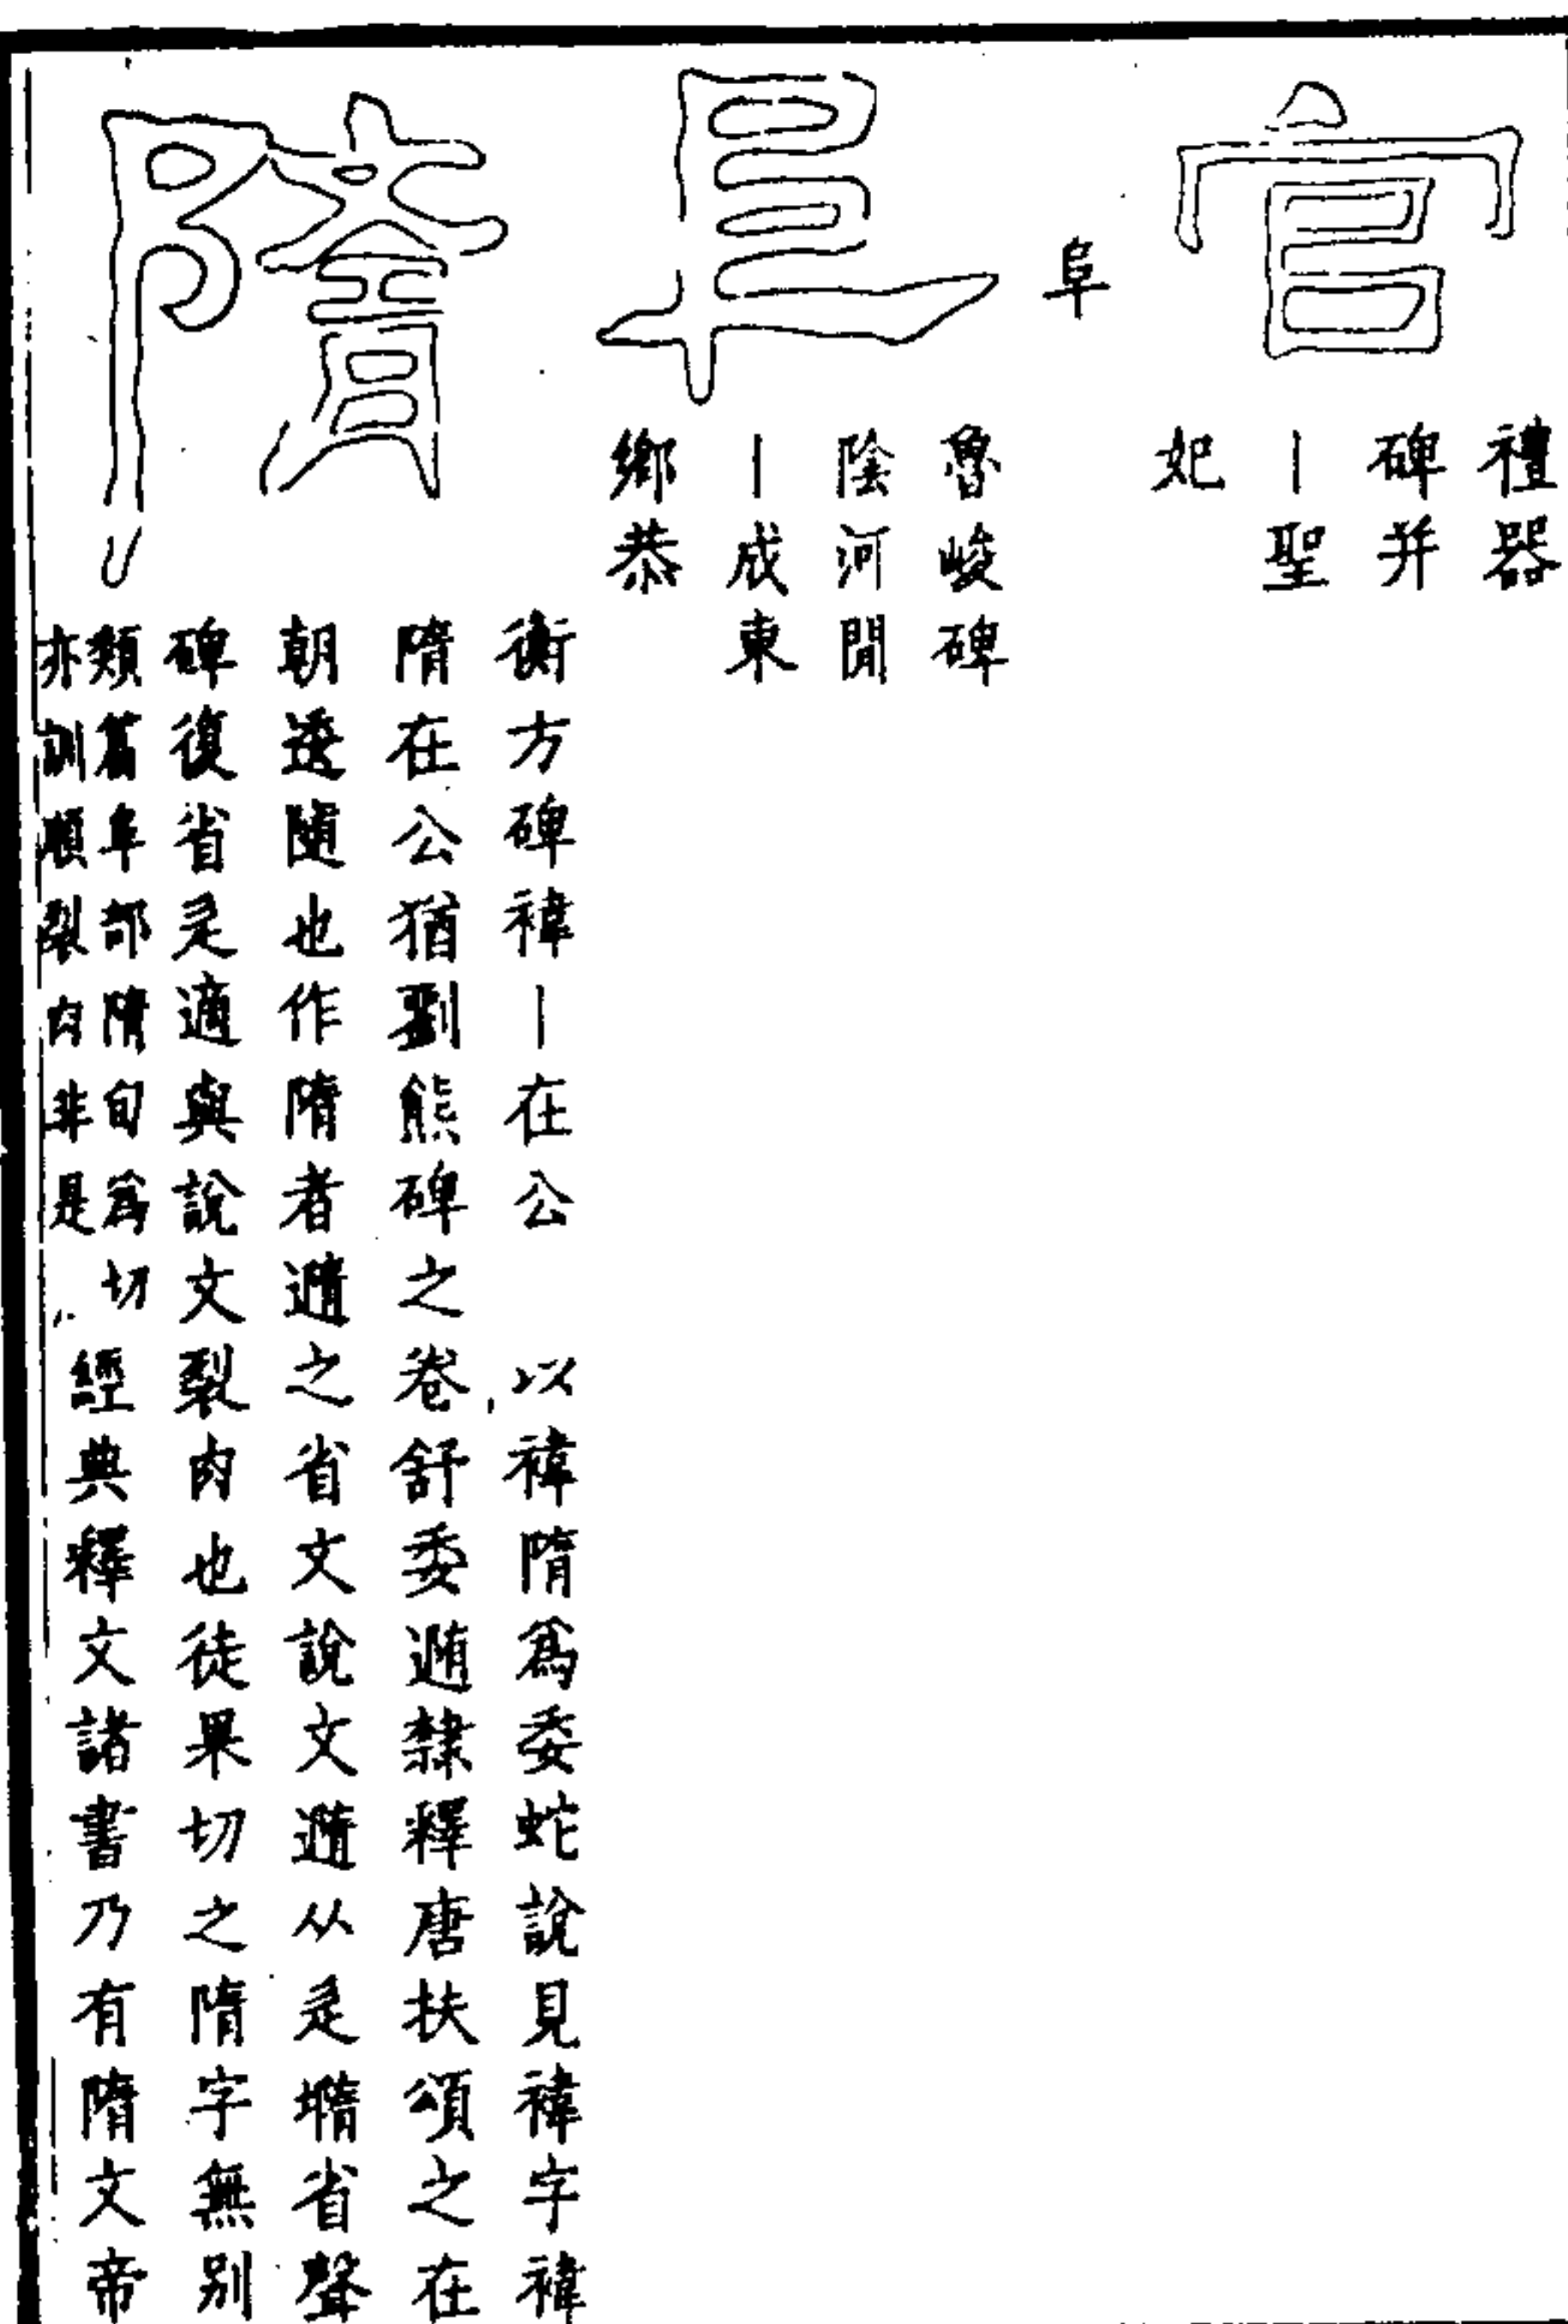 官
禮器
碑并
｜聖
妃
阜
𨸏
魯峻碑
陰河閒
｜成東
鄉恭
隋
衡方碑褘｜在公　以褘隋爲委蛇說見褘字褘
隋在公猶劉熊碑之卷舒委遀隸釋唐扶頌之在
朝逶隨也作隋者遺之省文說文遺从辵㙐省聲
碑復省辵適與說文裂肉也徒果切之隋字無別
類篇𨸏部隋旬爲切
亦訓順裂肉非是
經典釋文諸書乃有隋文帝